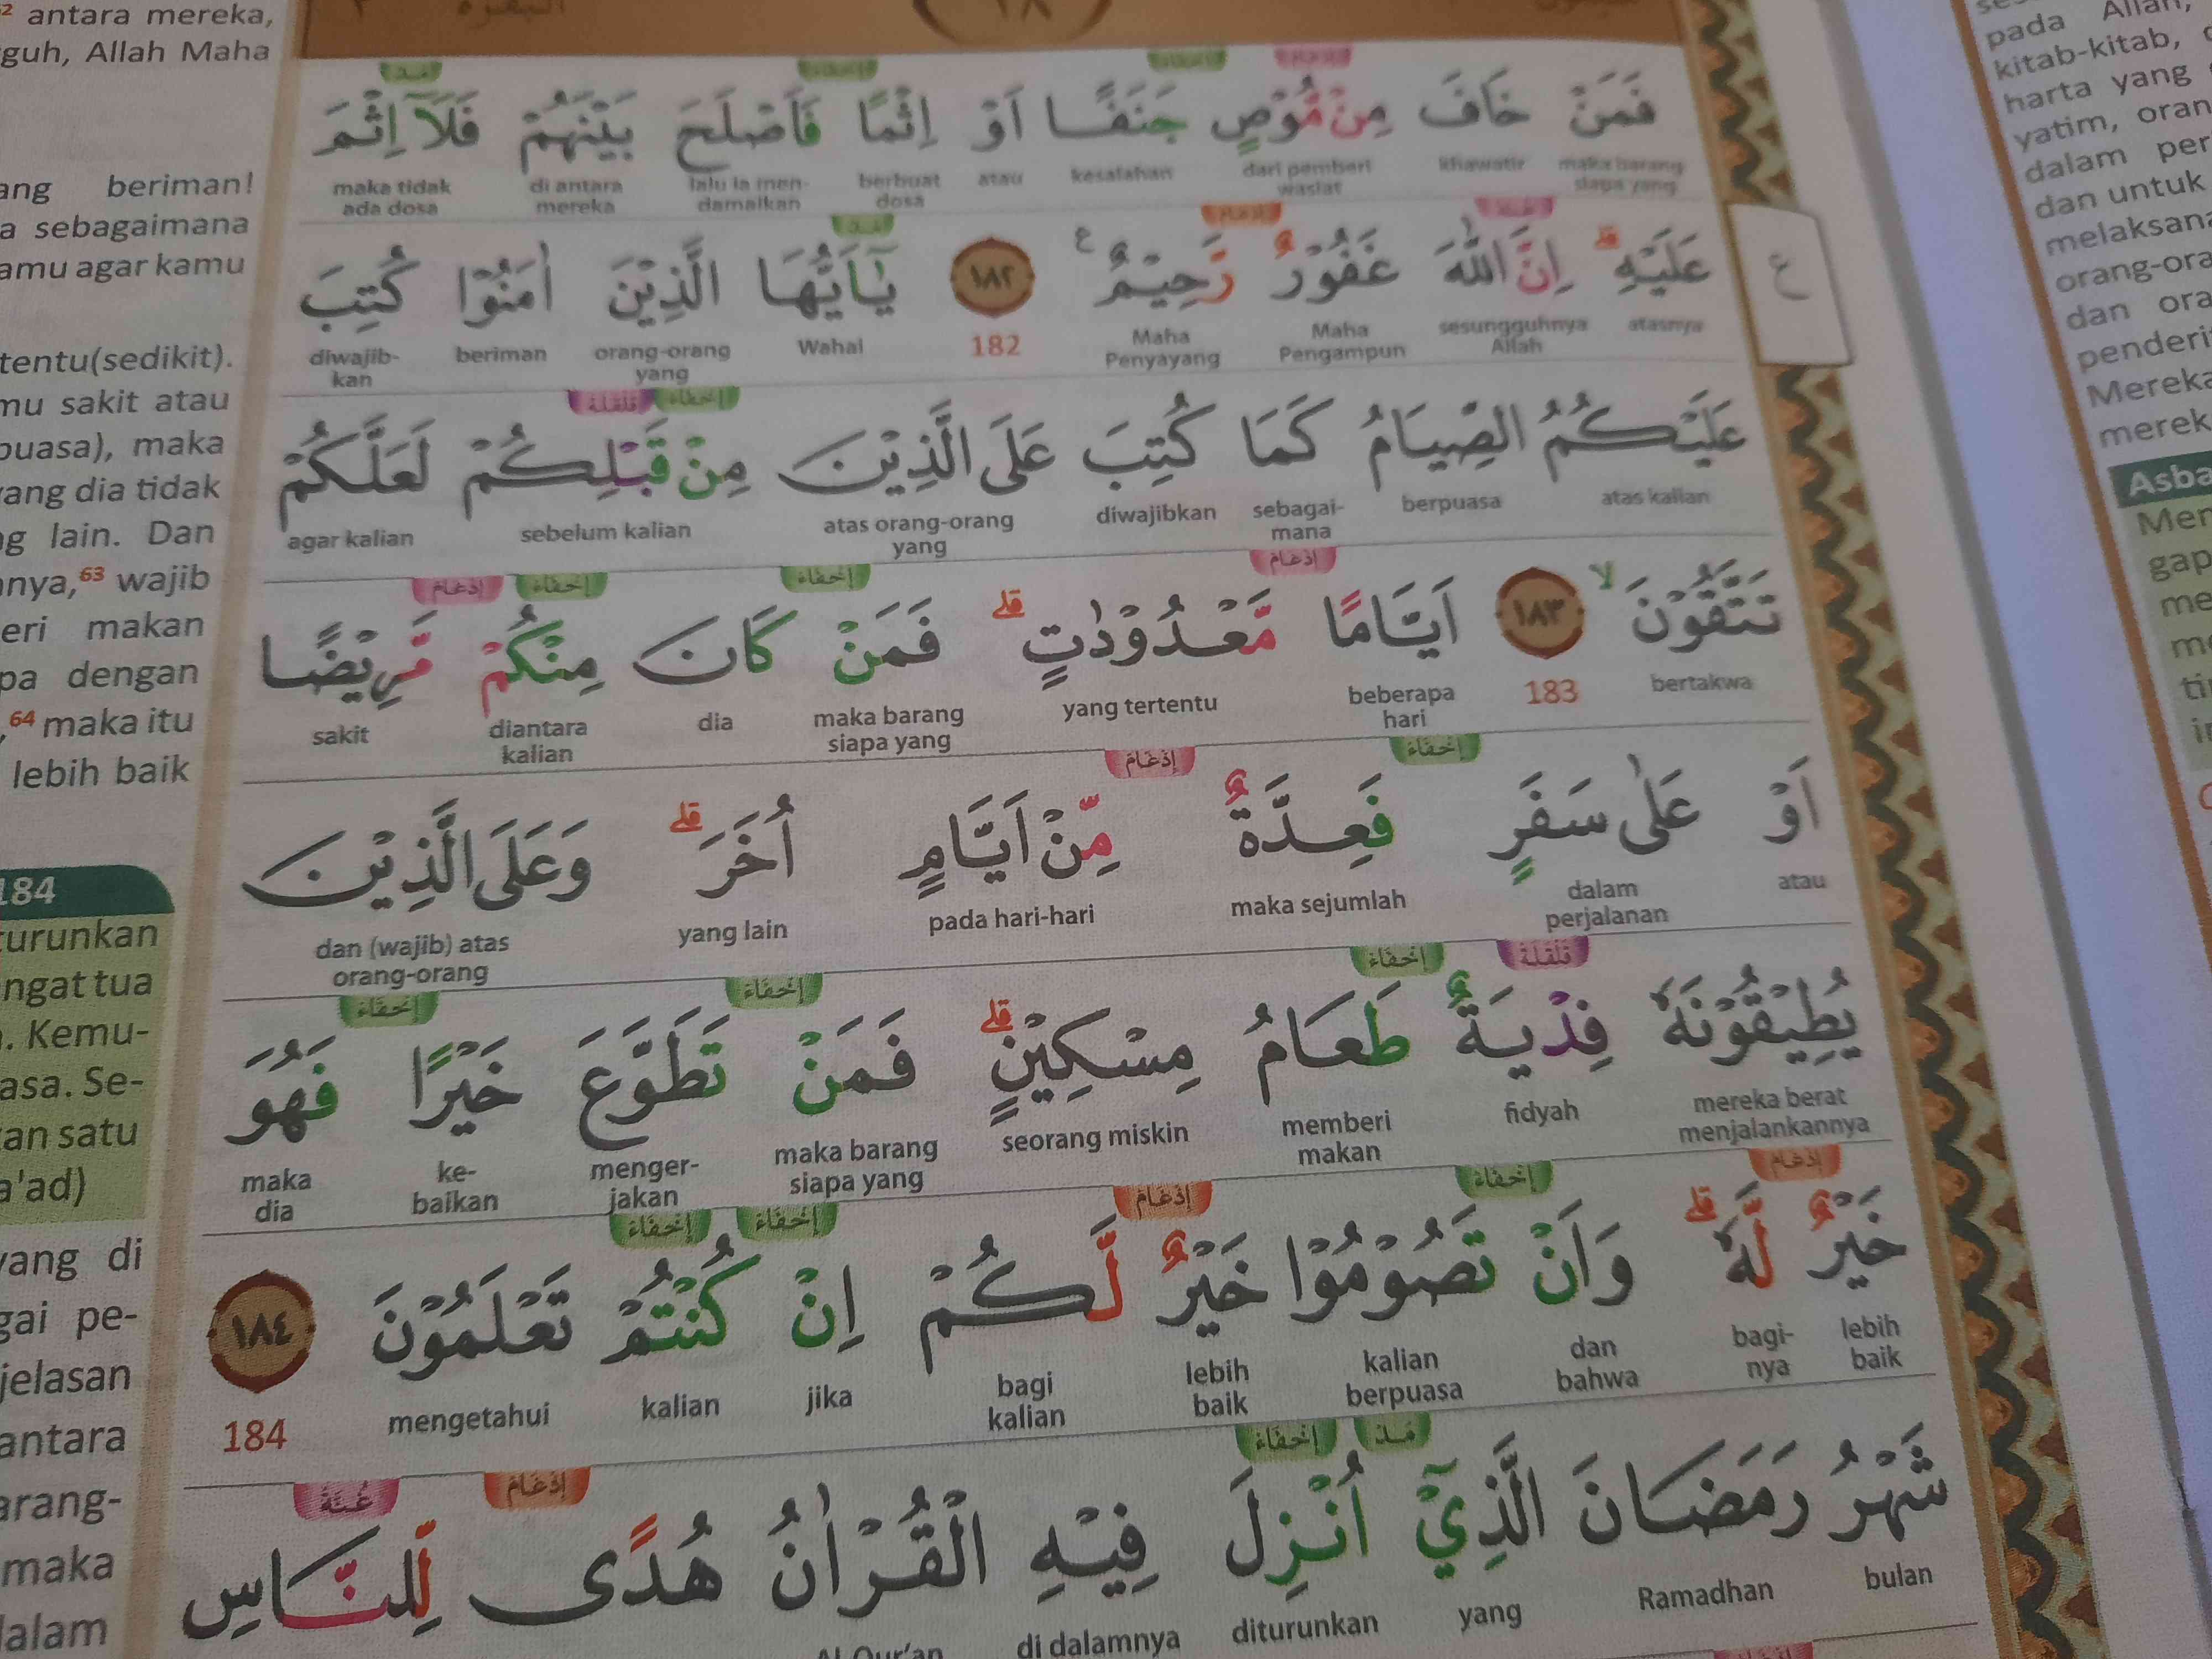 البقرة
فَمَنْ خَافَ مِنْ مُّوْصٍ جَنَفًا اَوْ اِثْمًا فَاَصْلَحَ بَيْنَهُمْ فَلَآ اِثْمَ
maka barang siapa yang khawatir dari pemberi wasiat kesalahan atau berbuat dosa lalu ia men-damaikan di antara mereka maka tidak ada dosa
عَلَيْهِ ۗ اِنَّ اللّٰهَ غَفُوْرٌ رَّحِيْمٌ ࣖ ١٨٢ يٰٓاَيُّهَا الَّذِيْنَ اٰمَنُوْا كُتِبَ
atasnya sesungguhnya Allah Maha Pengampun Maha Penyayang 182 Wahai orang-orang yang beriman diwajib-kan
عَلَيْكُمُ الصِّيَامُ كَمَا كُتِبَ عَلَى الَّذِيْنَ مِنْ قَبْلِكُمْ لَعَلَّكُمْ
atas kalian berpuasa sebagai-mana diwajibkan atas orang-orang yang sebelum kalian agar kalian
تَتَّقُوْنَ ۙ ١٨٣ اَيَّامًا مَّعْدُوْدٰتٍ ۗ فَمَنْ كَانَ مِنْكُمْ مَّرِيْضًا
bertakwa 183 beberapa hari yang tertentu maka barang siapa yang dia diantara kalian sakit
اَوْ عَلٰى سَفَرٍ فَعِدَّةٌ مِّنْ اَيَّامٍ اُخَرَ ۗ وَعَلَى الَّذِيْنَ
atau dalam perjalanan maka sejumlah pada hari-hari yang lain dan (wajib) atas orang-orang
يُطِيْقُوْنَهٗ فِدْيَةٌ طَعَامُ مِسْكِيْنٍ ۗ فَمَنْ تَطَوَّعَ خَيْرًا فَهُوَ
mereka berat menjalankannya fidyah memberi makan seorang miskin maka barang siapa yang menger-jakan ke-baikan maka dia
خَيْرٌ لَّهٗ ۗ وَاَنْ تَصُوْمُوْا خَيْرٌ لَّكُمْ اِنْ كُنْتُمْ تَعْلَمُوْنَ ١٨٤
lebih baik bagi-nya dan bahwa kalian berpuasa lebih baik bagi kalian jika kalian mengetahui 184
شَهْرُ رَمَضَانَ الَّذِيْٓ اُنْزِلَ فِيْهِ الْقُرْاٰنُ هُدًى لِّلنَّاسِ
bulan Ramadhan yang diturunkan di dalamnya Al-Qur'an
antara mereka,
guh, Allah Maha
ang beriman!
a sebagaimana
amu agar kamu
tentu(sedikit).
mu sakit atau
puasa), maka
yang dia tidak
g lain. Dan
nya,63 wajib
eri makan
pa dengan
,64 maka itu
lebih baik
184
turunkan
ngat tua
. Kemu-
asa. Se-
kan satu
a'ad)
yang di
gai pe-
jelasan
antara
arang-
maka
dalam
pada Allah,
kitab-kitab,
harta yang
yatim, oran
dalam per
dan untuk
melaksana
orang-ora
dan ora
penderi
Mereka
merek
Asba
Men
gap
me